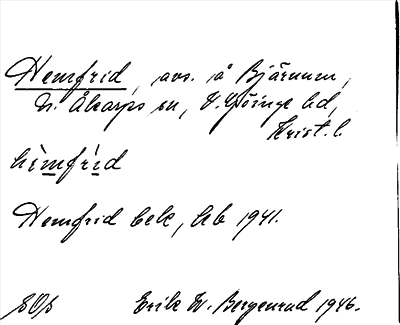 Hemfrid, avs. å Bjärnum,
N. Åkarps sn, V. Göinge hd,
Krist. l.
hèmfrìd
Hemfrid bek, hb 1941.
Erik W. Bergenrud 1946.